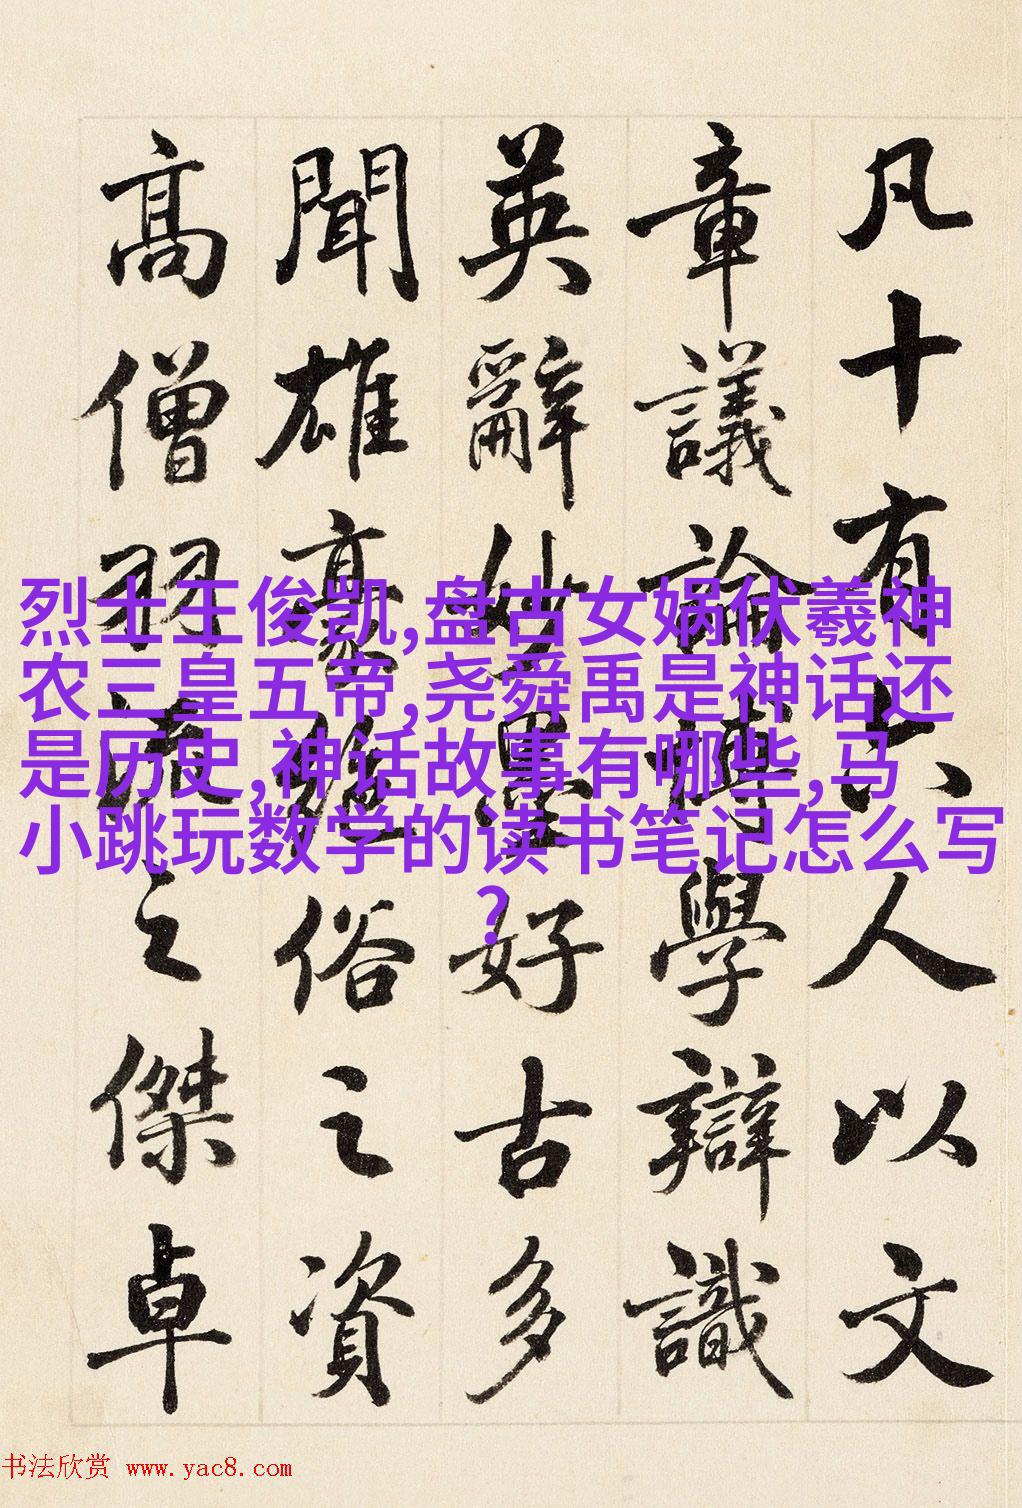 凡十有六人以文
章議論博學辯識
英辭妙墨好古多
聞雄豪絕俗之資
高僧羽流之傑卓
烈士王俊凯,盘古女娲伏羲神
农三皇五帝,尧舜禹是神话还
是历史,神话故事有哪些,马
小跳玩数学的读书笔记怎么写
?
书法欣赏 www.yac8.com